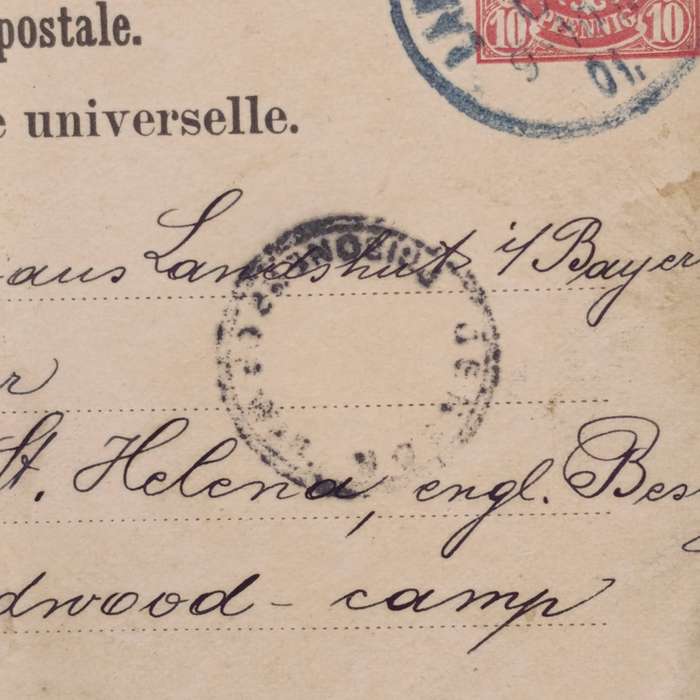 postale.
10 PFENNIG 10
01.
e universelle.
aus Landshut i/ Bayer
r
St. Helena, engl. Bes
dwood - camp